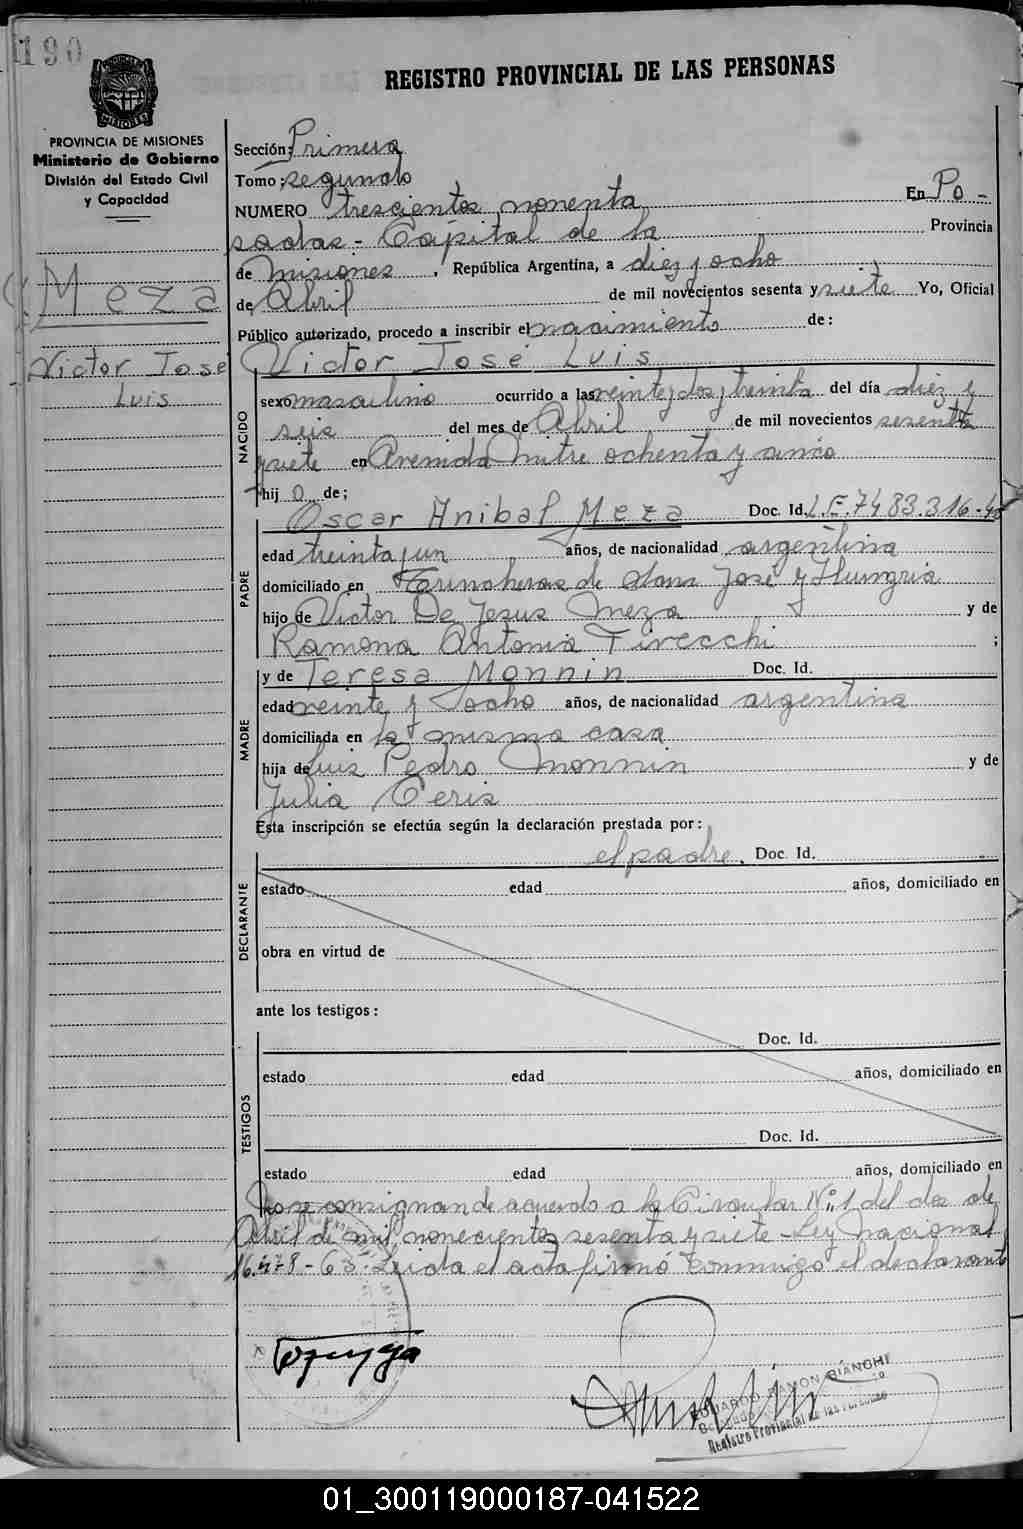 190
REGISTRO PROVINCIAL DE LAS PERSONAS
PROVINCIA DE MISIONES
Ministerio de Gobierno
División del Estado Civil
y Capacidad
MISIONES
Meza
Victor Jose
Luis
Sección: Primera
Tomo: segundo
NUMERO trescientos nonenta En Po-
sadas - Capital de la Provincia
de Misiones, República Argentina, a diez y ocho
de Abril de mil novecientos sesenta y siete Yo, Oficial
Público autorizado, procedo a inscribir el nacimiento de:
Victor José Luis
NACIDO
sexo masculino ocurrido a las veinte y dos y treinta del día diez y
seis del mes de Abril de mil novecientos sesenta
y siete en Avenida Mitre ochenta y cinco
hijo de;
PADRE
Oscar Anibal Meza Doc. Id. L.E. 7483.316-
edad treinta y un años, de nacionalidad argentina
domiciliado en Trincheras de San José y Hungria
hijo de Victor De Jesus Meza y de
Ramona Antonia Tirecchi ;
MADRE
y de Teresa Monnin Doc. Id.
edad veinte y ocho años, de nacionalidad argentina
domiciliada en la misma casa
hija de Luis Pedro Monnin y de
Julia Ceris
Esta inscripción se efectúa según la declaración prestada por:
DECLARANTE
el padre. Doc. Id.
estado edad años, domiciliado en
obra en virtud de
ante los testigos:
TESTIGOS
Doc. Id.
estado edad años, domiciliado en
Doc. Id.
estado edad años, domiciliado en
No se consignan de acuerdo a la Circular Nº 1 del dos de
Abril de mil nonecientos sesenta y siete - Ley Nacional
16.478-63. Leida el acta firmó conmigo el declarante
EDUARDO RAMON BIANCHI
Registro Provincial de las Personas
01_300119000187-041522